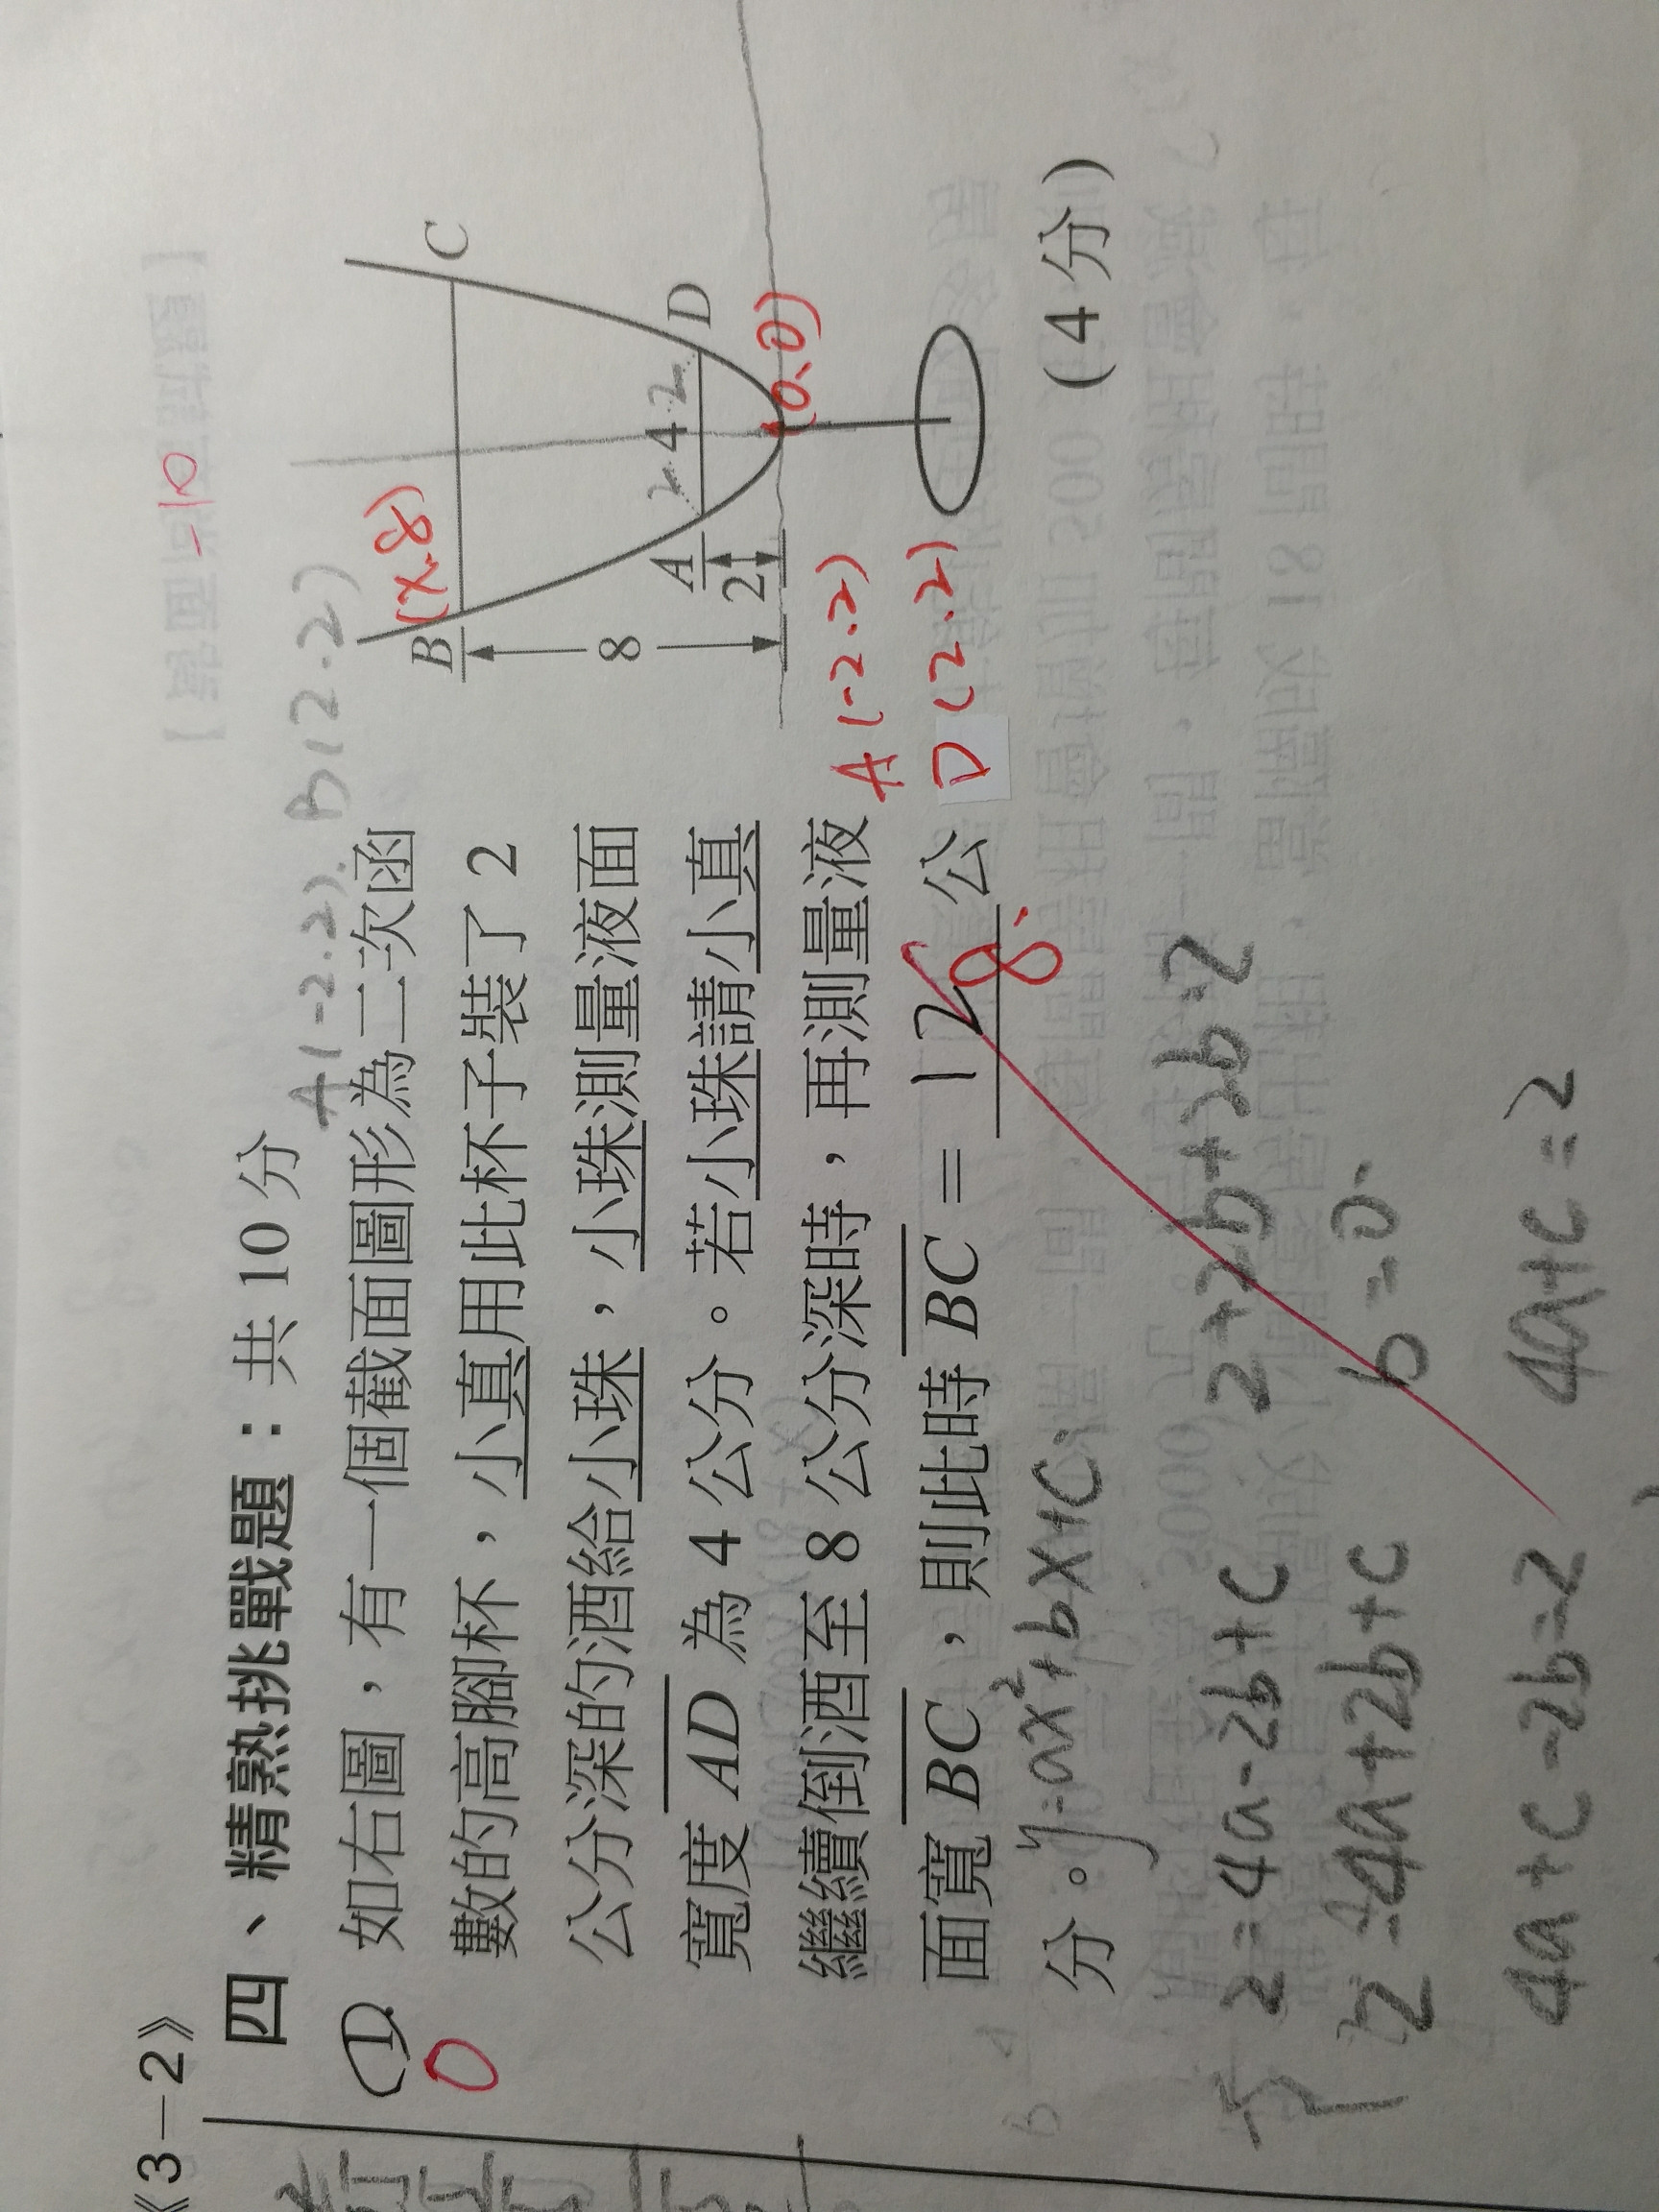 《3-2》
四、精熟挑戰題：共 10 分
A(-2.2). B(2.2)
1. 如右圖，有一個截面圖形為二次函
0
數的高腳杯，小真用此杯子裝了 2
公分深的酒給小珠，小珠測量液面
寬度 AD 為 4 公分。若小珠請小真
繼續倒酒至 8 公分深時，再測量液
面寬 BC，則此時 BC = 12 8 公
分。 (4 分)
-10
B (x.8) C
8
A 2 4 2 D
2
(0.0)
A(-2.2)
D(2.2)
y=ax²+bx+c
2=4a-2b+c
2=4a+2b+c
2+2b+2b=2
b=0
4a+c-2b=2
4a+c=2